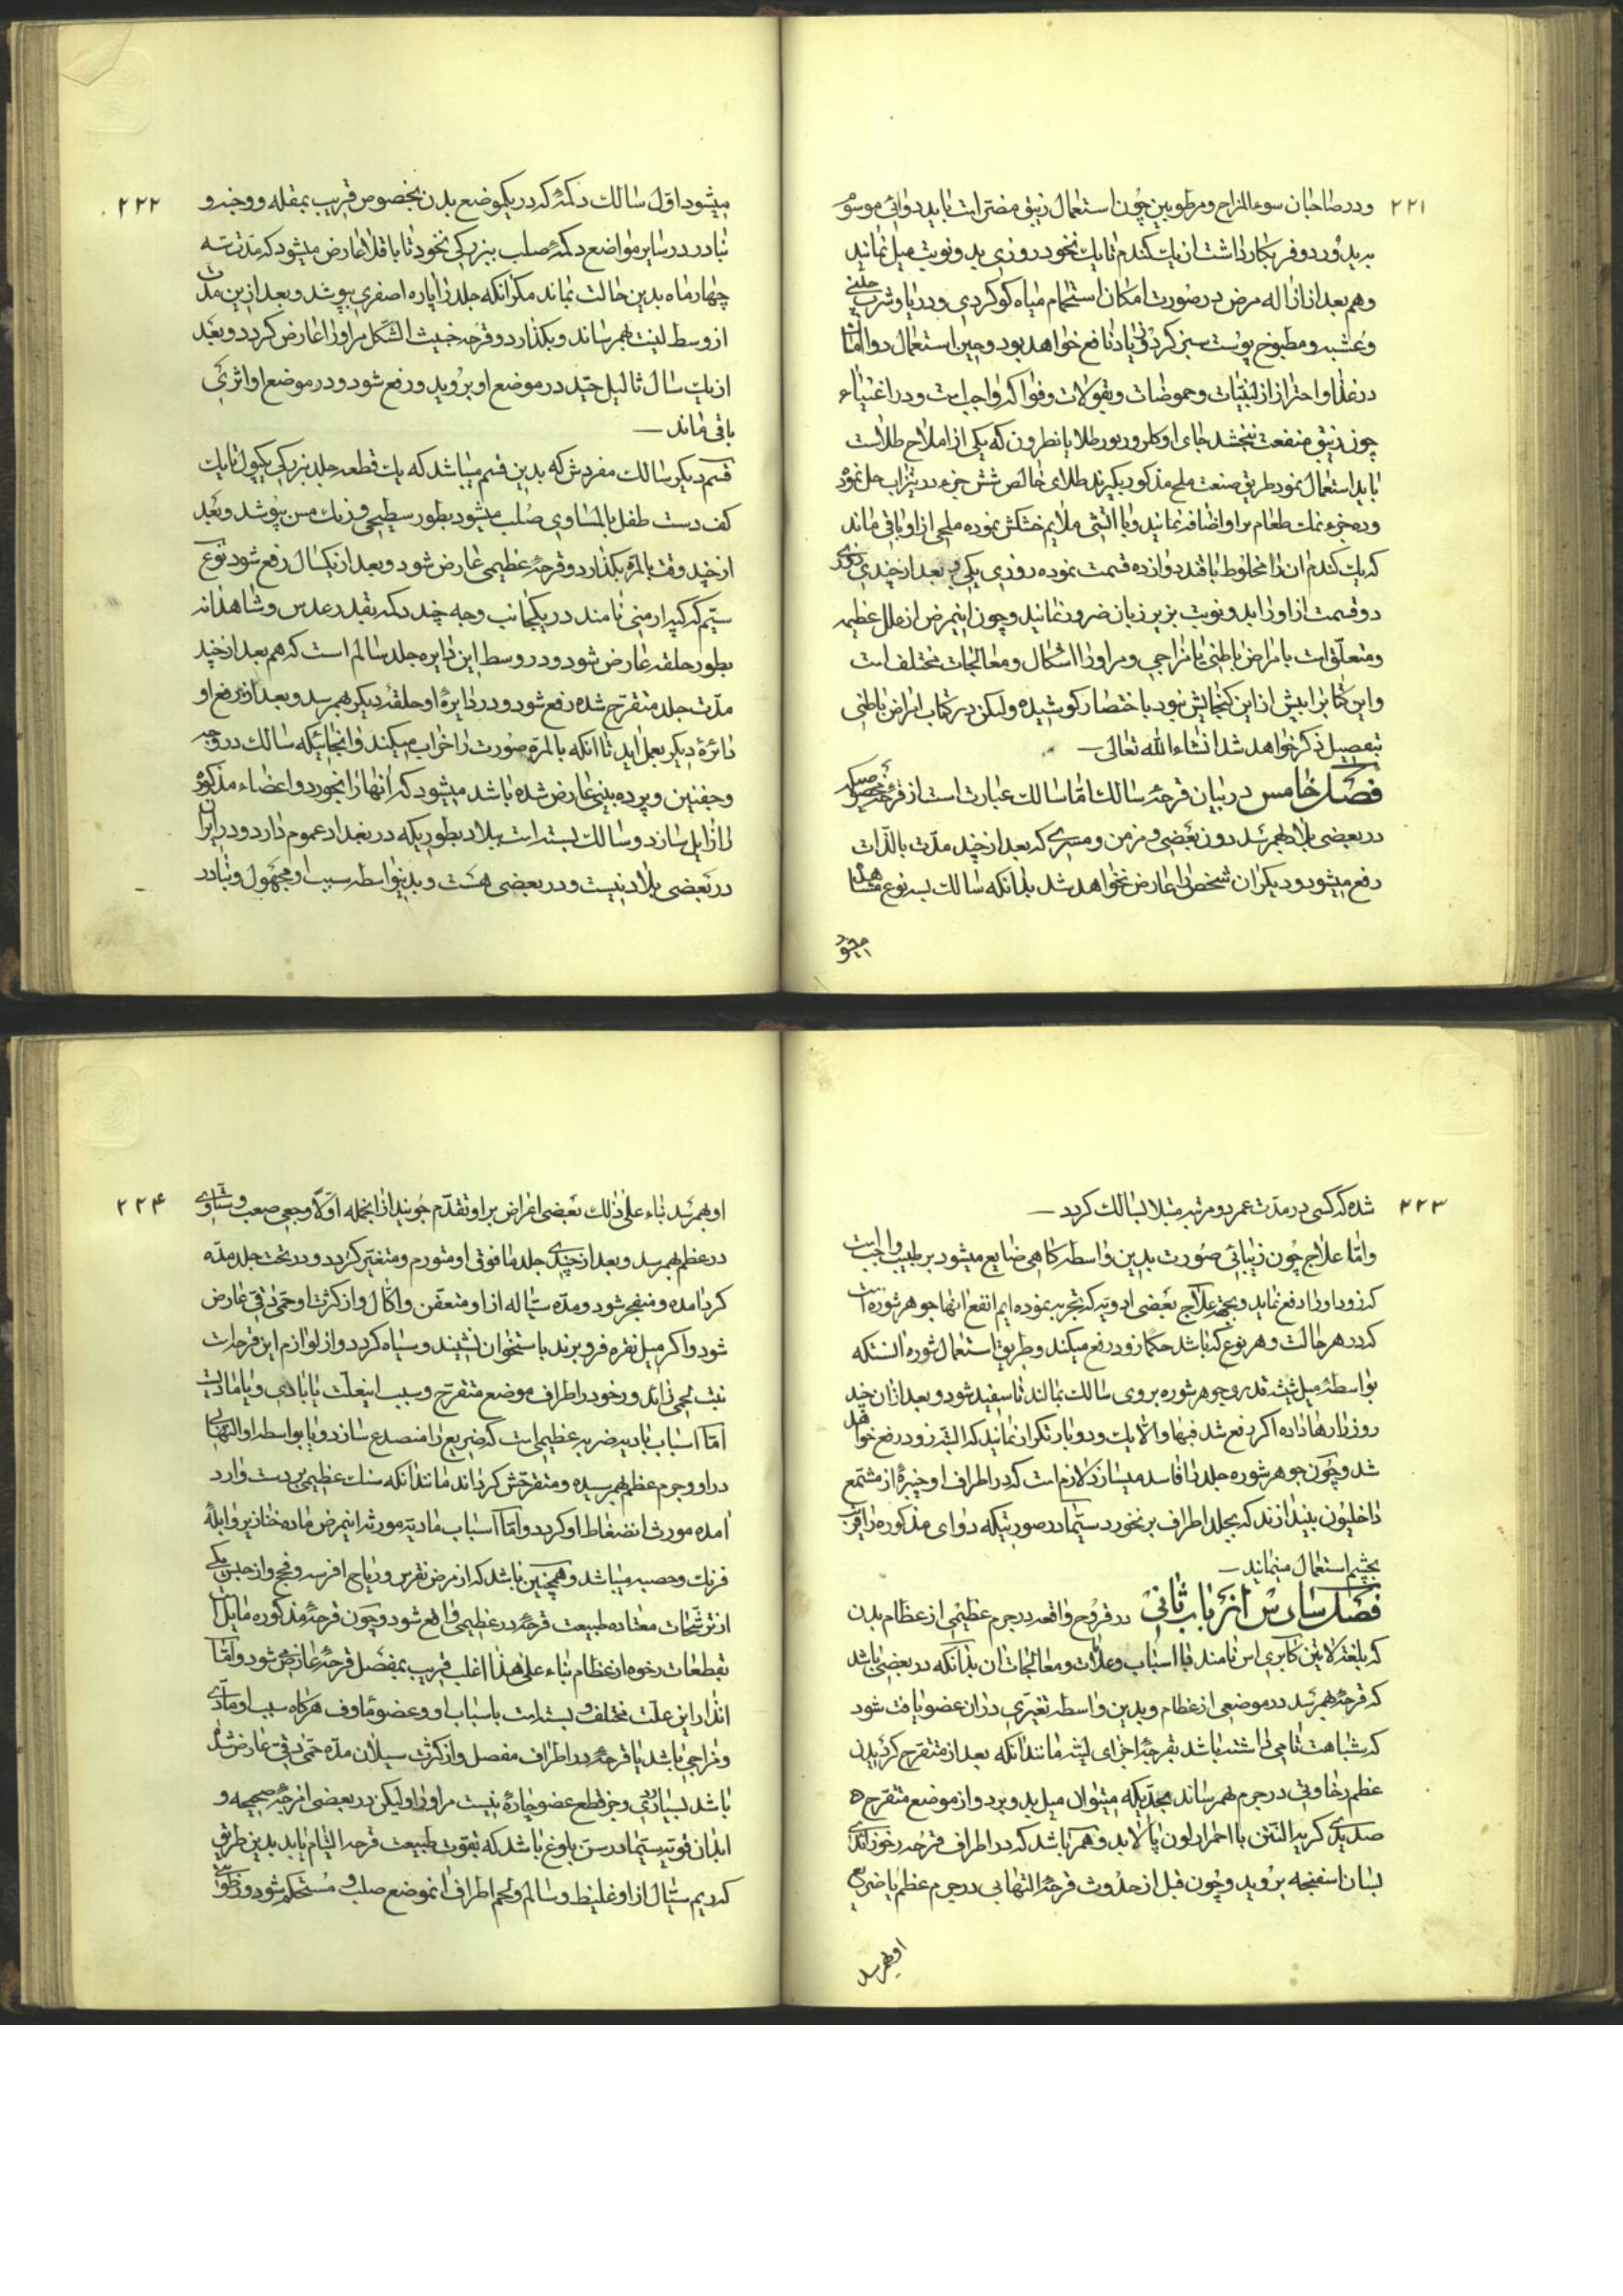 ۲۲۱
و در صاحبان سوء المزاج و مرطوبین چون استعمال زیبق مضر است باید دوائی موسوم
و هم بعد از ازاله مرض در صورت امکان استحمام میاه کوکردی و دریا و شرب
و عشبه و مطبوخ پوست سبز کردو زیاد نافع خواهد بود و حین استعمال دوا امّا
در غذا و احتراز از لبنیّات و حموضات و بقولات و فواکه واجبست و در اغنیاء
چون زیبق منفعت نبخشد بجای او کلرورور طلا یا نطرون که یکی از املاح طلاست
باید استعمال نمود طریق صنعت ملح مذکور بکیرند طلای خالص شش جزء در تیزاب حل نموده
و ده جزء نمک طعام بر او اضافه نمایند و با اتشی ملایم خشکش نموده ملحی از او باقی ماند
که یک کندم ان را مخلوط با قند دوازده قسمت نموده روزی یکی و بعد از چندی
دو قسمت از او را بدو نوبت بزیر زبان ضرور نمایند و چون اینمرض از علل عظیمه
و متعلق است بامراض باطنی یا مزاجی و مر او را اشکال و معالجات مختلف است
و این کتاب را بیش از این کنجایش نبود باختصار کوشیده ولیکن در کتاب امراض باطنی
بتفصیل ذکر خواهد شد انشاء الله تعالی
فصل خامس در بیان قرحهٔ سالک امّا سالک عبارت است از قرحهٔ مخصوصیکه
در بعضی بلاد بهمرسد دون بعضی و مزمن و مسری که بعد از چند مدّت بالذّات
رفع میشود و دیکر ان شخص را عارض نخواهد شد بدانکه سالک بسه نوع مشاهده
میشود
۲۲۲
میشود اوّل سالک دکمهٔ که در یکموضع بدن بخصوص قریب بمقله و وجنه و
نبادر در سایر مواضع دکمهٔ صلب ببزرکی نخود تا باقلا عارض میشود که مدّت سه
چهار ماه بدین حالت بماند مکر آنکه جلد را پاره اصفری بپوشد و بعد از این مدّت
از وسط لینت بهمرساند و بکذارد و قرحه خبیث الشّکل مر او را عارض کردد و بعد
از یک سال ثالیل جیّد در موضع او بروید و رفع شود و در موضع او اثری
باقی ماند
قسم دیکر سالک مفروش که بدین قسم میباشد که یک قطعه جلد ببزرکی یکپول تا یک
کف دست طفل بالمساوی صلب میشود بطور سطیحی و زنک مس بپوشد و بعد
از چند وقت بالمرّه بکذارد و قرحهٔ عظیمی عارض شود و بعد از یکسال رفع شود نوع
سیّم که کپه ارمنی نامند در یکجانب وجه چند دکمه بقدر عدس و شاهدانه
بطور حلقه عارض شود و در وسط این دایره جلد سالم است که هم بعد از چند
مدّت جلد متقرّح شده رفع شود و در دایرهٔ او حلقهٔ دیکر بهمرسد و بعد از رفع او
دائرهٔ دیکر بعمل اید تا انکه بالمرّه صورت را خراب میکند و انجائیکه سالک در وجه
و جفنین و پرده بینی عارض شده باشد میشود که انها را بخورد و اعضاء مذکوره
را زایل سازد و سالک بسته است ببلاد بطوریکه در بغداد عموم دارد و در ایران
در بعضی بلاد نیست و در بعضی هست و بدینواسطه سبب او مجهول و نبادر
۲۲۳
شده که کسی در مدّت عمر دو مرتبه مبتلا بسالک کردد
و امّا علاج چون زیبائی صورت بدین واسطه کاهی ضایع میشود بر طبیب واجب است
که زود او را دفع نماید و بجهة علاج بعضی ادویه که تجربه نموده ایم انفع انها جوهر شوره است
که در هر حالت و هر نوع که باشد حکما زود رفع میکند و طریق استعمال شوره انستکه
بواسطهٔ میل شیشه قدری جوهر شوره بر روی سالک بمالند تا سفید شود و بعد از ان چند
روز زا رها داده اکر رفع شد فبها و الا یک و دو بار تکرار نمایند که البتّه زود رفع خواهد
شد و چون جوهر شوره جلد را فاسد میسازد لازم است که در اطراف او چنبرهٔ از مشمّع
داخلیون بیندازند که بجلد اطراف بر نخورد سیّما در صورتیکه دوای مذکوره را قریب
بچشم استعمال مینمایند
فصل سادس از باب ثانی در قروح واقعه در جرم عظیمی از عظام بدن
که بلغة لاتین کابری اس نامند با اسباب و علامات و معالجات ان بدانکه در بعضی باشد
که قرحهٔ بهمرسد در موضعی از عظام و بدین واسطه تغیّری در ان عضو یافت شود
که شباهت تامی داشته باشد بقرحهٔ اجزای لینه مانند انکه بعد از متقرّح کردیدن
عظم رخاوتی در جرم بهمرساند بحدّیکه میتوان میل بدو برد و از موضع متقرّحه
صدیدی کریه النتن با احمرار لون پالاید و هم باشد که در اطراف قرحه رخو زائدی
بسان اسفنجه بروید و چون قبل از حدوث قرحهٔ التهابی در جرم عظم یا ضریع
او بهمرسد
۲۲۴
او بهمرسد بناء علی ذلک بعضی اعراض بر او تقدّم جویند از انجمله اوّلا وجعی صعب و متساوی
در عظم بهمرسد و بعد از چندی جلد مافوق او متورم و متغیّر کردد و در تحت جلد مدّه
کرد امده و منفجر شود و مدّه سیّاله از او متعفّن و اکّال و از کثرت او حمّی دقی عارض
شود و اکر میل نقره فرو برند باستخوان نشیند و سیاه کردد و از لوازم این قرحه است
نبت لحمی زائد و رخو در اطراف موضع متقرّح و سبب اینعلّت یا بادی و یا مادیست
امّا اسباب بادیه ضربه عظیمی است که ضریع را منصدع سازد و یا بواسطه او التهابی
در او و جرم عظم بهمرسیده و متقرّحش کرداند مانند انکه سنک عظیمی بر دست وارد
امده مورث انضغاط او کردد و امّا اسباب مادیّه مورثه اینمرض ماده خنازیر و ابلهٔ
فرنک و حصبه میباشد و همچنین باشد که از مرض نقرس و ریاح افرسه و فجع و از حبس یکی
از ترشحات معتاده طبیعت قرحهٔ در عظیمی واقع شود و چون قرحهٔ مذکوره مایل است
بقطعات رخوه از عظام بناء علی هذا اغلب قریب بمفصل قرحهٔ عارض شود و امّا
انذار این علّت مختلف و بسته است باسباب او و عضو ماوف هر کاه سبب او مادّی
و مزاجی باشد یا قرحهٔ در اطراف مفصل و از کثرت سیلان مدّه حمّی دقی عارض شده
باشد بسیار ردی و جز قطع عضو چارهٔ نیست مر او را ولیکن در بعضی امزجهٔ صحیحه و
ابدان قویه سیّما در سن بلوغ باشد که بقوّت طبیعت قرحه التیام یابد بدین طریق
که ریم سیّال از او غلیظ و سالم و لحم اطراف انموضع صلب و مستحکم شود و